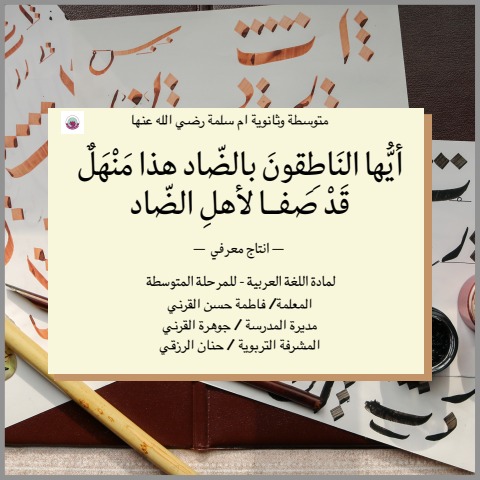 متوسطة وثانوية ام سلمة رضي الله عنها
أيُّها النَاطقونَ بالضّاد هذا مَنْهَلٌ
قَدْ صَفـا لأهلِ الضّاد
— انتاج معرفي —
لمادة اللغة العربية - للمرحلة المتوسطة
المعلمة/ فاطمة حسن القرني
مديرة المدرسة / جوهرة القرني
المشرفة التربوية / حنان الرزقي